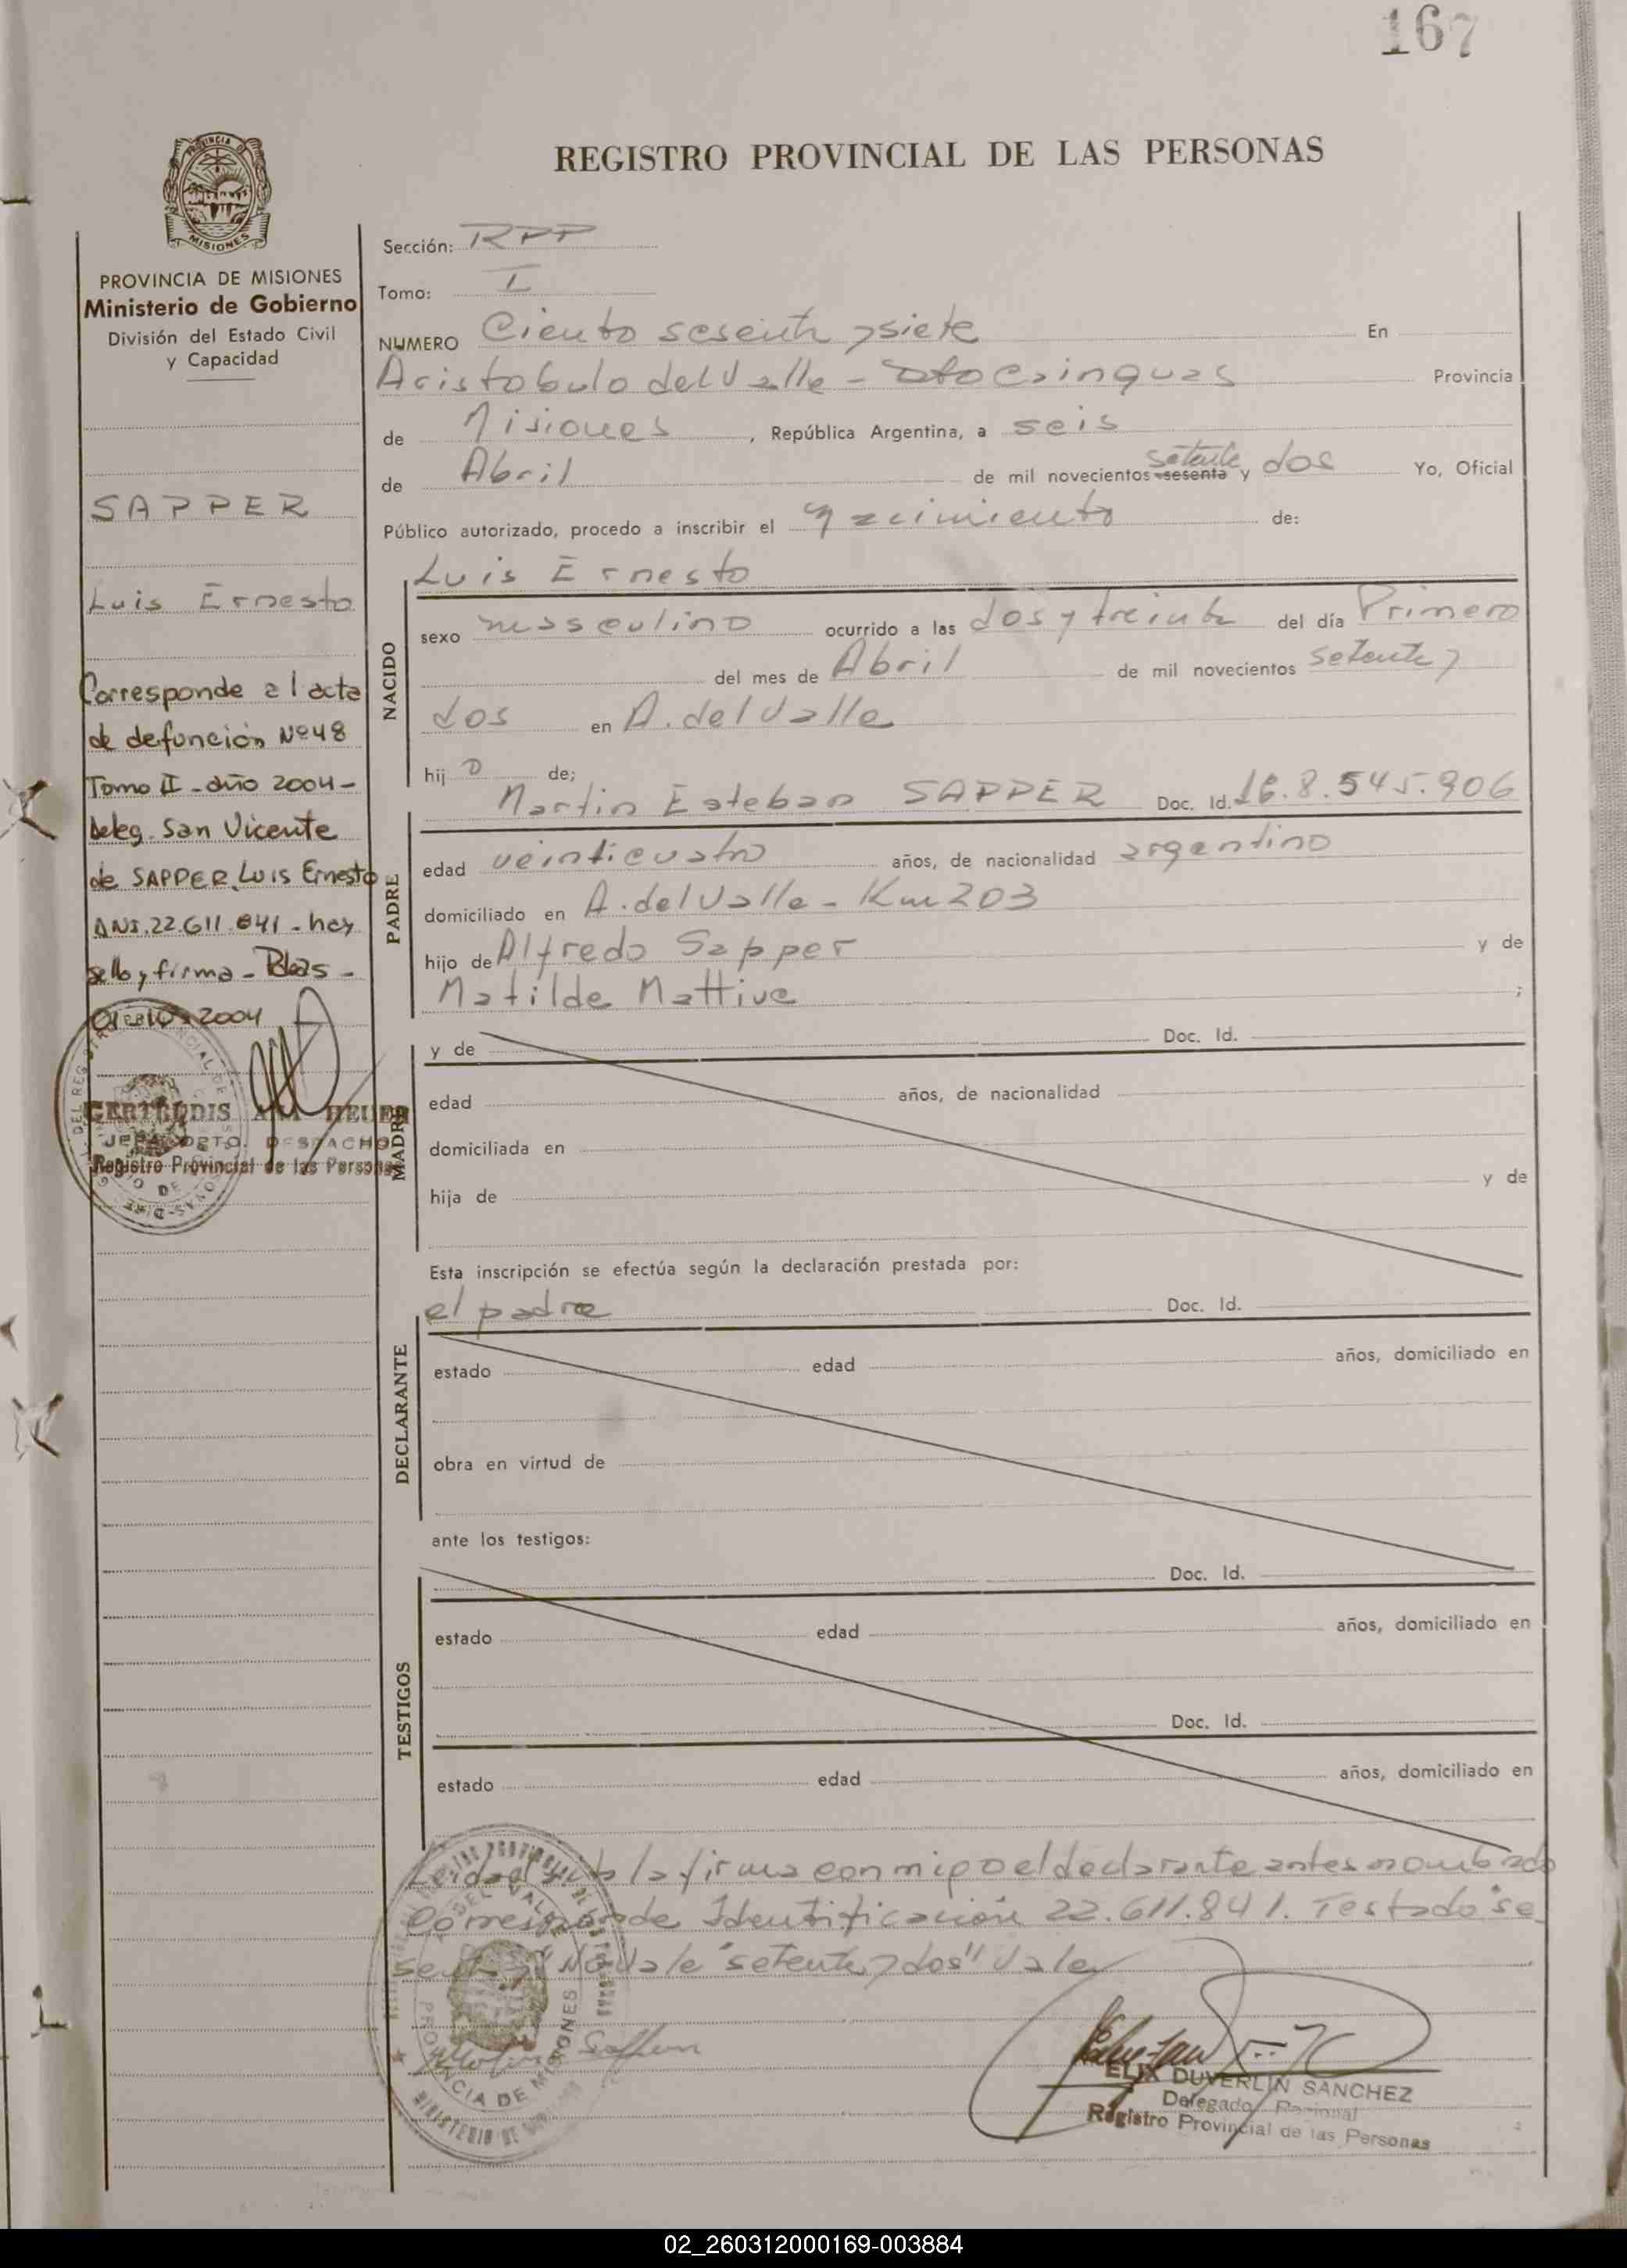 167
REGISTRO PROVINCIAL DE LAS PERSONAS
PROVINCIA DE MISIONES
Ministerio de Gobierno
División del Estado Civil
y Capacidad
SAPPER
Luis Ernesto
Corresponde al acta
de defunción Nº 48
Tomo II - año 2004 -
deleg. San Vicente
de SAPPER, LUIS Ernesto
DNI. 22.611.841 - hay
sello y firma - Pdas -
2004
GERTRUDIS ANA HEUER
JEFA DPTO. DESPACHO
Registro Provincial de las Personas
Sección: RPP
Tomo: I
NUMERO Ciento sesenta y siete En
Aristobulo del Valle - Provincia
de Misiones, República Argentina, a seis
de Abril de mil novecientos sesenta setenta y dos Yo, Oficial
Público autorizado, procedo a inscribir el nacimiento de:
NACIDO
Luis Ernesto
sexo masculino ocurrido a las dos y treinta del día Primero
del mes de Abril de mil novecientos setenta y
dos en A. del Valle
hij o de;
PADRE
Martin Esteban SAPPER Doc. Id. 8.545.906
edad veinticuatro años, de nacionalidad argentino
domiciliado en A. del Valle - Km 203
hijo de Alfredo Sapper y de
Matilde Mattive ;
MADRE
y de Doc. Id.
edad años, de nacionalidad
domiciliada en
hija de y de
Esta inscripción se efectúa según la declaración prestada por:
DECLARANTE
el padre Doc. Id.
estado edad años, domiciliado en
obra en virtud de
ante los testigos:
TESTIGOS
Doc. Id.
estado edad años, domiciliado en
Doc. Id.
estado edad años, domiciliado en
Leida el acta la firma conmigo el declarante antes nombrado
Corresponde Identificación 22.611.841. Testado "se
senta y" No Vale "setenta y dos" Vale
PROVINCIA DE MISIONES
FELIX DUVERLIN SANCHEZ
Delegado Regional
Registro Provincial de las Personas
02_260312000169-003884